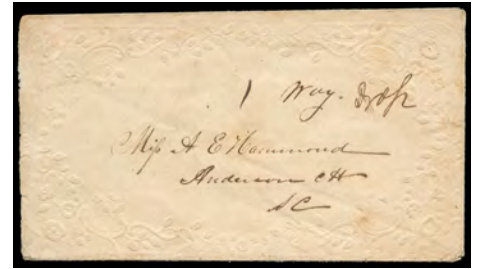 1 Way. Drop
Miss A E Hammond
Anderson CH
SC